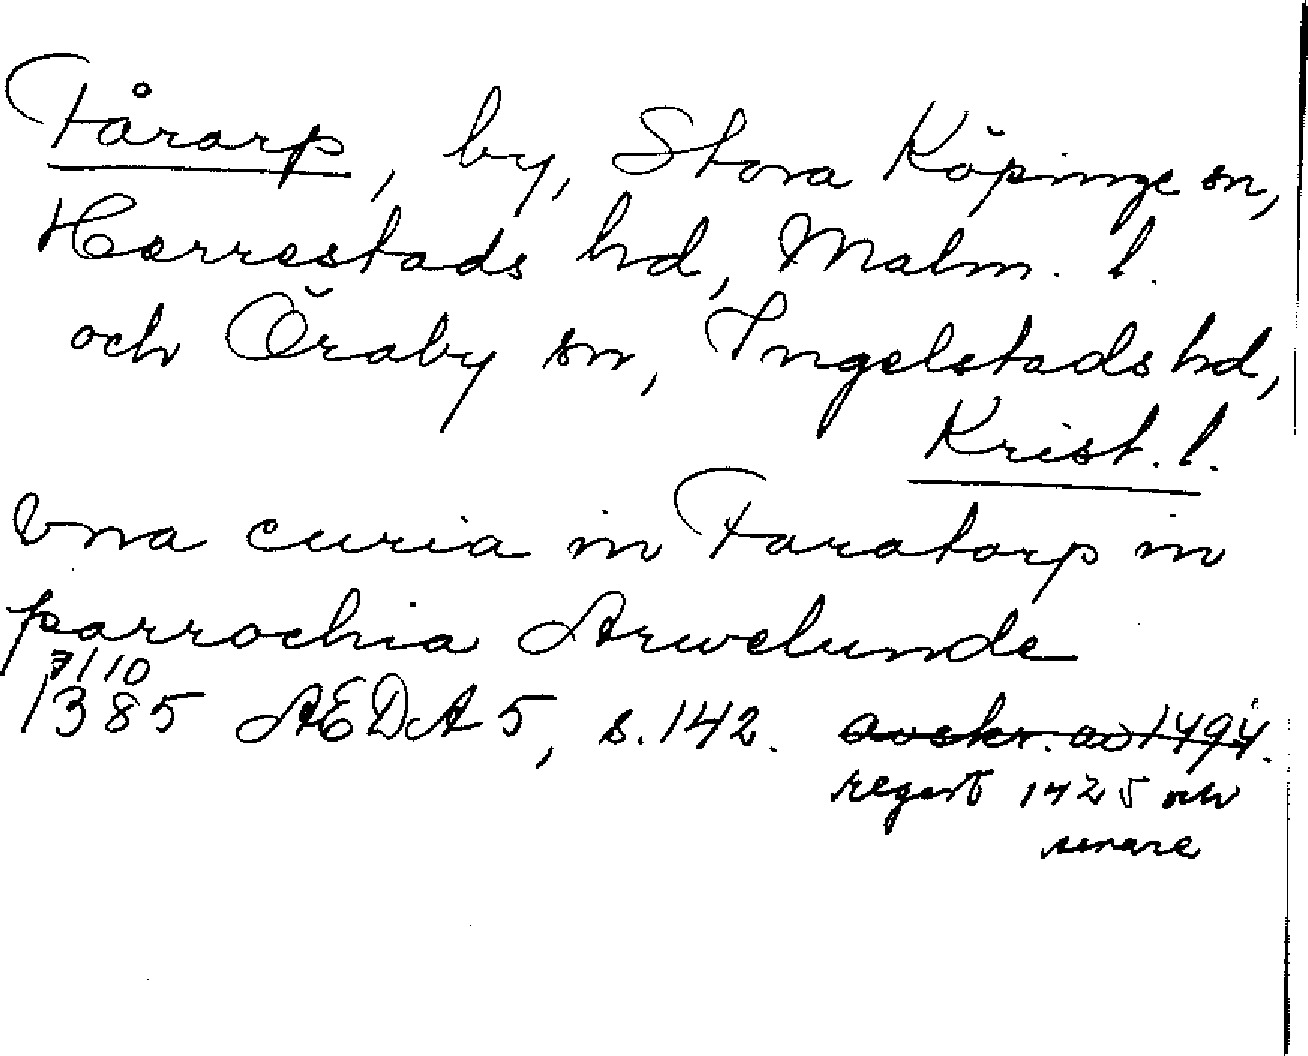 Fårarp, by, Stora Köpinge sn,
Herrestads hd, Malm. l.
och Öraby sn, Ingelstads hd,
Krist. l.
Vna curia in Faratorp in
parrochia Arwelunde
7/10
1385 AEDA 5, s. 142. avskr. av 1494.
regest 1425 och
senare